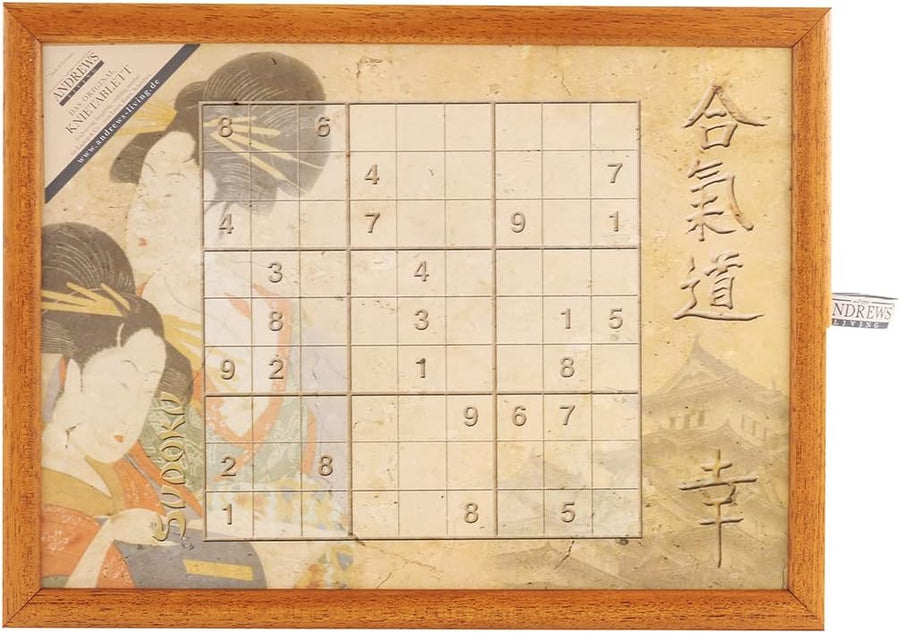 ANDREWS
LIVING
DAS ORIGINAL
KNIETABLETT
www.andrews-living.de
8 6
4 7
4 7 9 1
3 4
8 3 1 5
9 2 1 8
9 6 7
2 8
1 8 5
SUDOKU
合
氣
道
幸
ANDREWS
LIVING